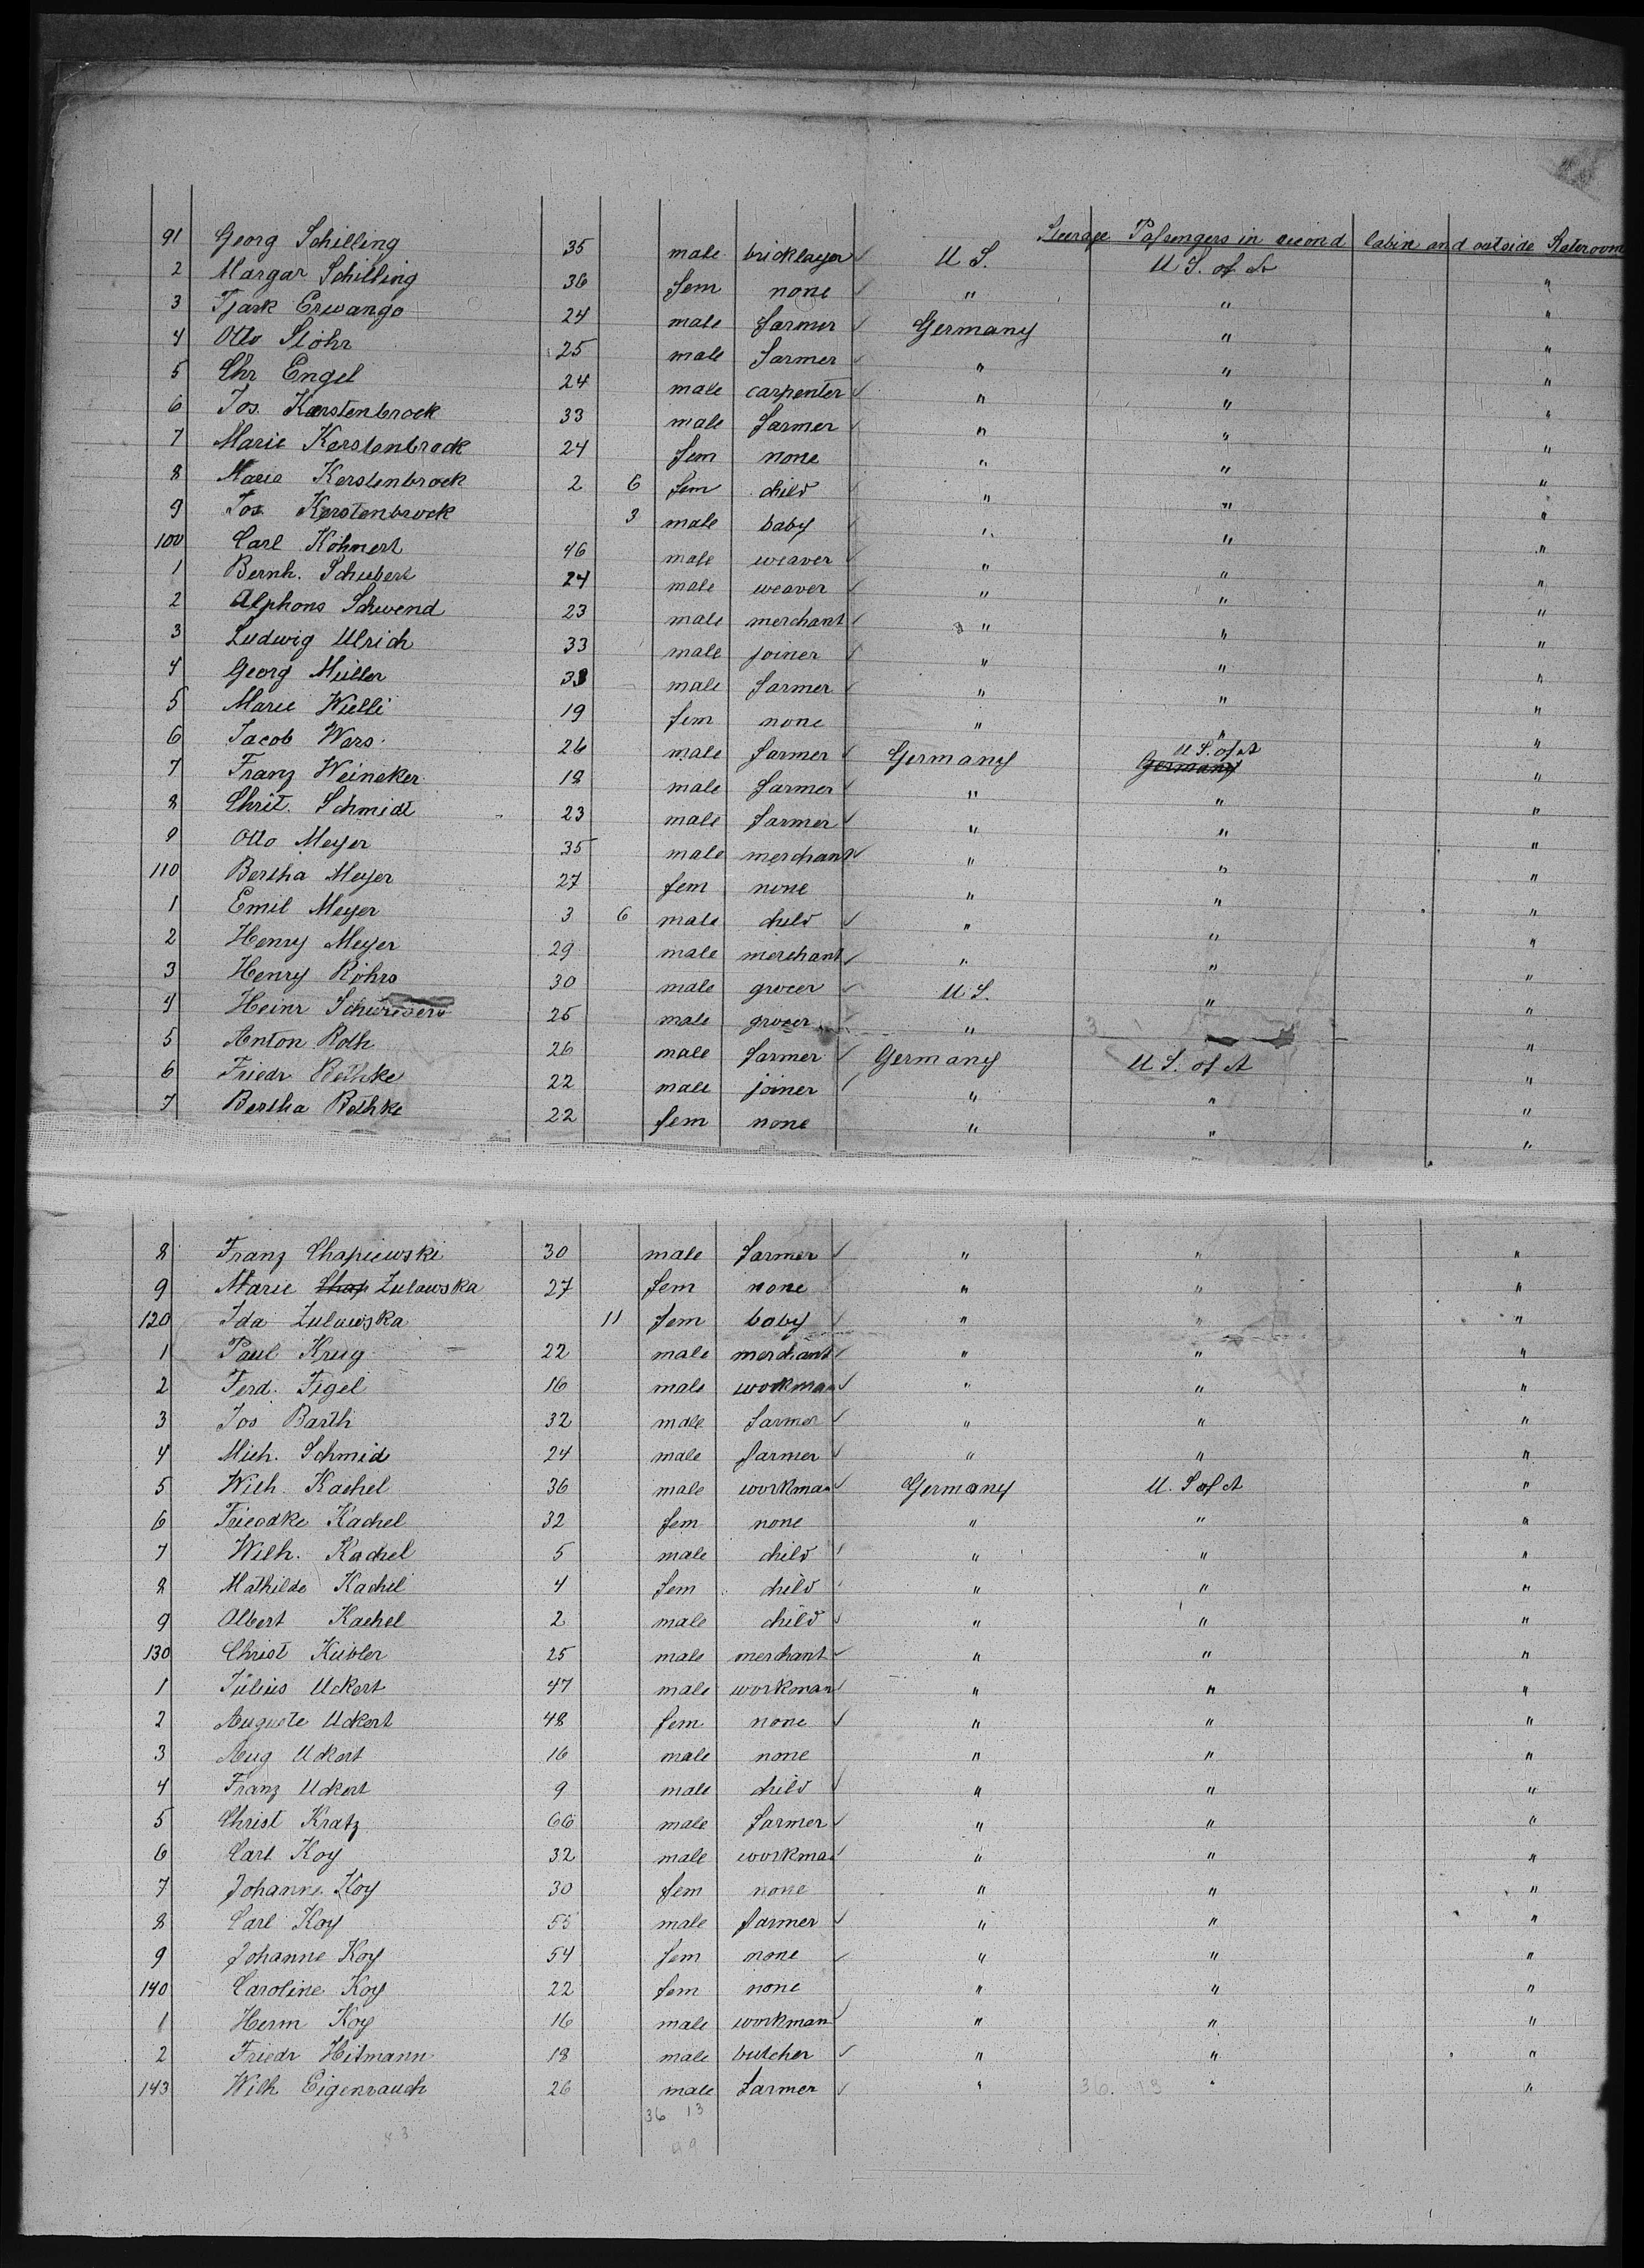 Steerage Passengers in second Cabin and outside Stateroom
91 Georg Schilling 35 male bricklayer U S. U S. of A "
2 Margar Schilling 36 fem none " " "
3 Tjark Erwango 24 male farmer Germany " "
4 Otto Stöhr 25 male farmer " " "
5 Chr Engel 24 male carpenter " " "
6 Jos. Kerstenbrock 33 male farmer " " "
7 Marie Kerstenbrock 24 fem none " " "
8 Marie Kerstenbrock 2 6 fem child " " "
9 Jos Kerstenbrock 3 male baby " " "
100 Carl Kohnert 46 male weaver " " "
1 Bernh. Schubert 24 male weaver " " "
2 Alphons Schwend 23 male merchant " " "
3 Ludwig Ulrich 33 male joiner " " "
4 Georg Müller 33 male farmer " " "
5 Marie Wielli 19 fem none " " "
6 Jacob Wers 26 male farmer Germany U S. of A Germany "
7 Franz Weineker 18 male farmer " " "
8 Christ. Schmidt 23 male farmer " " "
9 Otto Meyer 35 male merchant " " "
110 Bertha Meyer 27 fem none " " "
1 Emil Meyer 3 6 male child " " "
2 Henry Meyer 29 male merchant " " "
3 Henry Röhrs 30 male grocer U S. " "
4 Heinr 25 male grocer " "
5 Anton Roth 26 male farmer Germany U S. of A "
6 Friedr Bethke 22 male joiner " " "
7 Bertha Bethke 22 fem none " " "
8 Franz Chapiewski 30 male farmer " " "
9 Marie Chap Zulawska 27 fem none " " "
120 Ida Zulawska 11 fem baby " " "
1 Paul Krug 22 male merchant " " "
2 Ferd. Figel 16 male workman " " "
3 Jos Barth 32 male farmer " " "
4 Mich. Schmid 24 male farmer " " "
5 Wilh. Kachel 36 male workman Germany U. S of A "
6 Friedke Kachel 32 fem none " " "
7 Wilh. Kachel 5 male child " " "
8 Mathilde Kachel 4 fem child " " "
9 Albert Kachel 2 male child " " "
130 Christ Kübler 25 male merchant " " "
1 Julius Uckert 47 male workman " " "
2 Auguste Uckert 48 fem none " " "
3 Aug Uckert 16 male none " " "
4 Franz Uckert 9 male child " " "
5 Christ Kratz 66 male farmer " " "
6 Carl Koy 32 male workman " " "
7 Johanne Koy 30 fem none " " "
8 Carl Koy 55 male farmer " " "
9 Johanne Koy 54 fem none " " "
140 Caroline Koy 22 fem none " " "
1 Herm Koy 16 male workman " " "
2 Friedr Hitmann 18 male butcher " " "
143 Wilh Eigenrauch 26 male farmer " " "
36 13